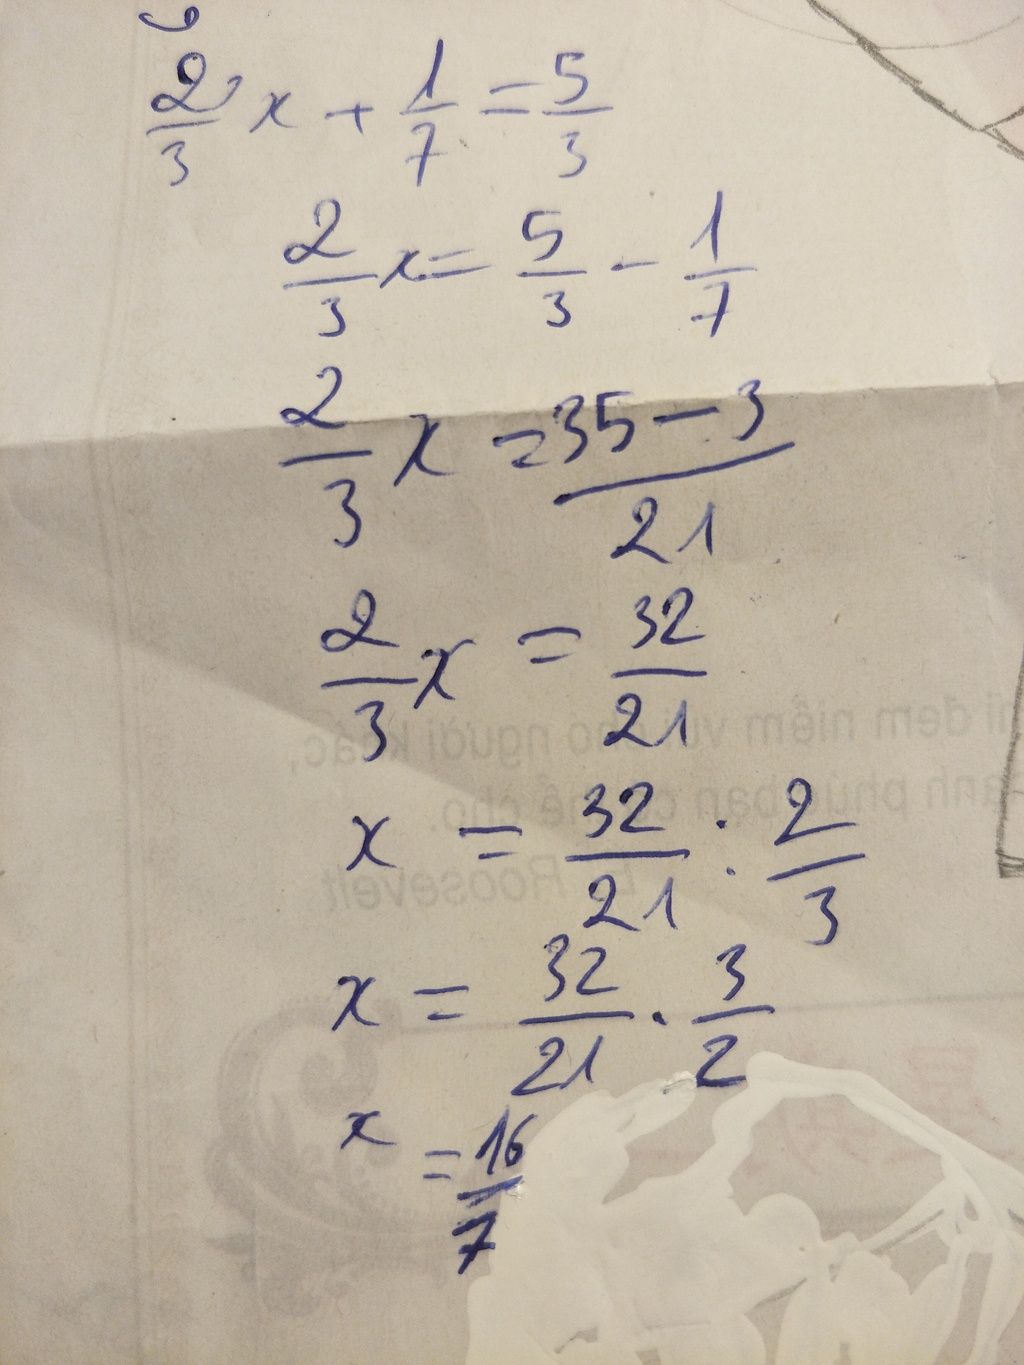 2/3 x + 1/7 = 5/3
2/3 x = 5/3 - 1/7
2/3 x = 35 - 3/21
2/3 x = 32/21
x = 32/21 : 2/3
x = 32/21 . 3/2
x = 16/7
đem niềm vui cho người khác,
hạnh phúc bạn có thể cho.
Roosevelt